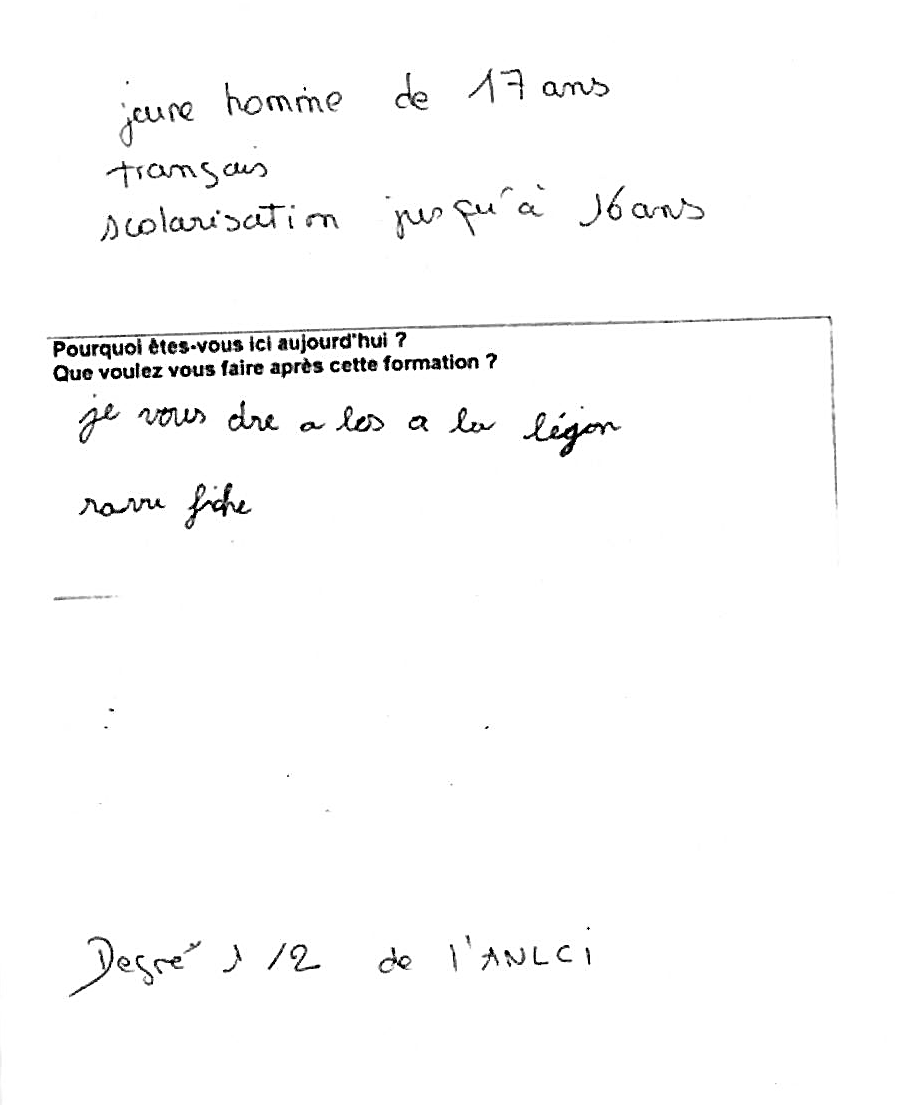 jeune homme de 17 ans
français
scolarisation jusqu'à 16 ans
Pourquoi êtes-vous ici aujourd'hui ?
Que voulez vous faire après cette formation ?
je vous dre a les a la légon
ravu fiche
Degré 1/2 de l'ANLCI